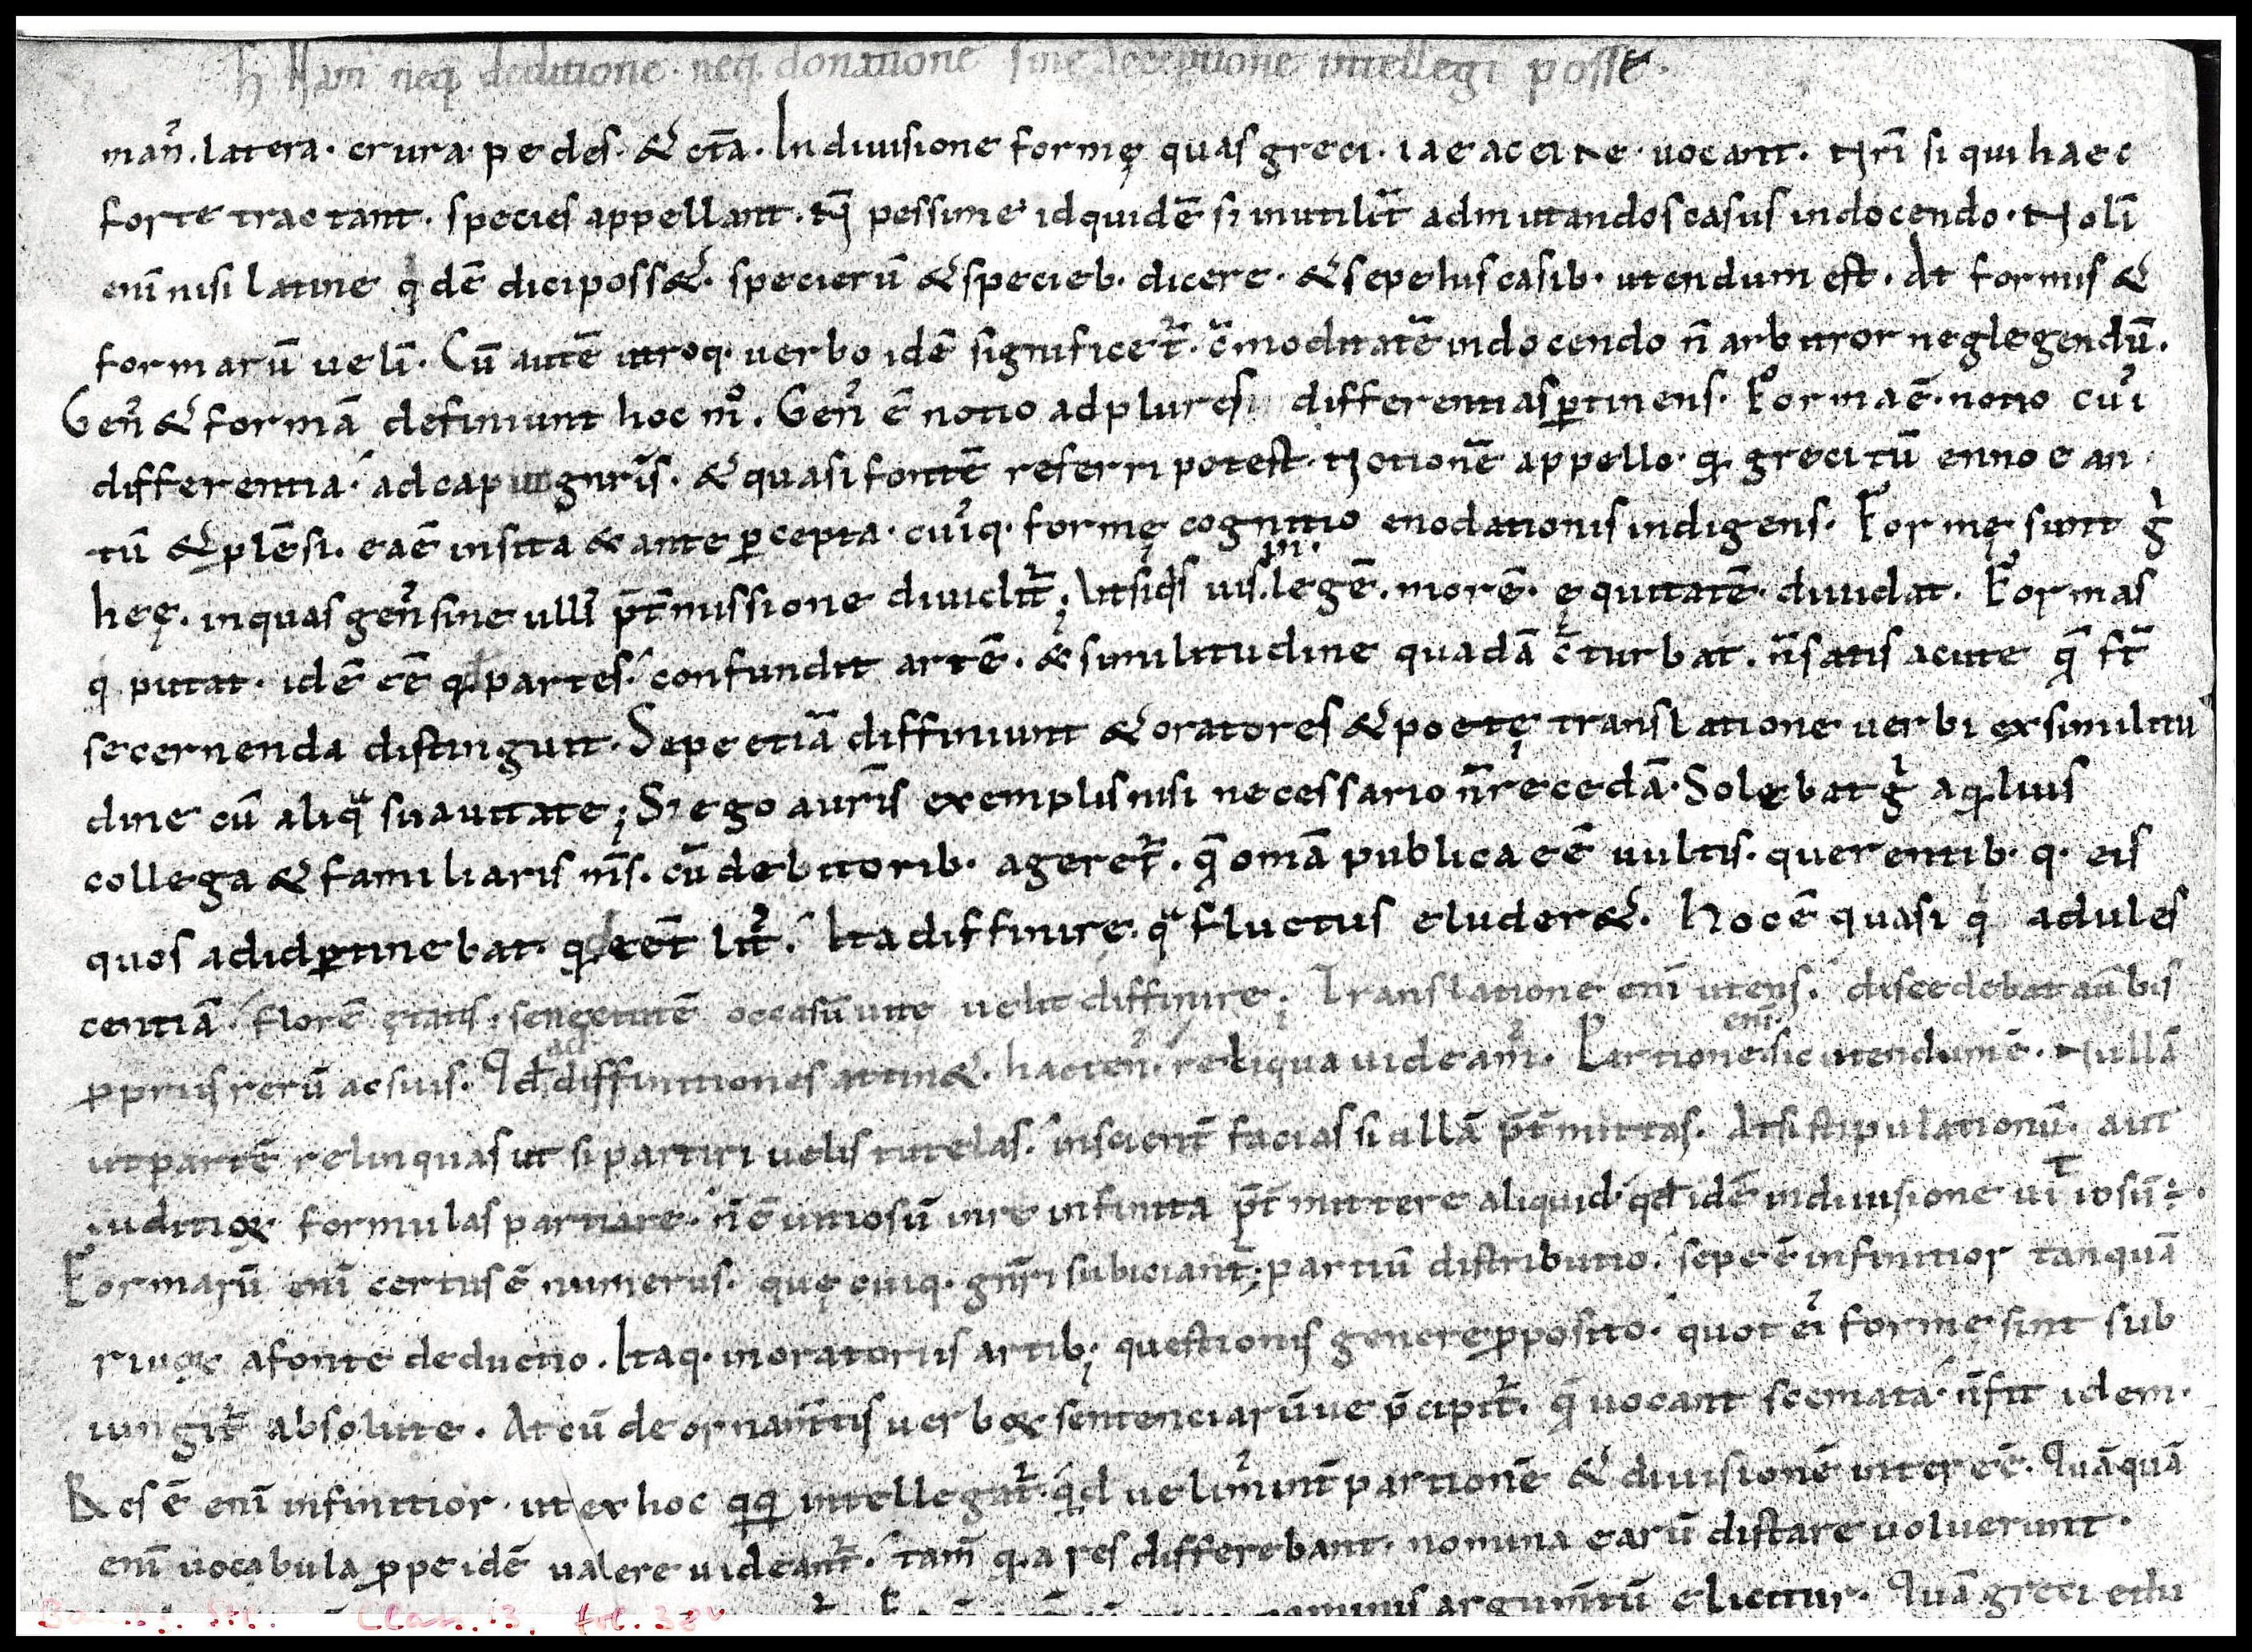 h Nam neq; deditione. neq. donatione sine acceptione intellegi posse.
man᷒. latera. crura. pedes. & cet̃a. In diuisione formę quas greci. iaeacike. uocant. Nr̄i si qui haec
forte tractant. species appellant. n̄ pessime id quidē s; inutilit̄ ad mutandos casus in docendo. Noli᷒
eni᷒ nisi latine q'dē dici poss&. specierū & specieb. dicere. & sepe his casib. utendum est. At formis &
formarū ueli᷒. Cū autē utroq. uerbo idē significet᷒. c̄moditatē in docendo n̄ arbitror neglegendū.
Gen᷒ & formā definiunt hoc m°. Gen᷒ ē notio ad plures differentias ꝑtinens. Forma ē. notio cui᷒
differentia. ad caput gnr̄is. & quasi fontē referri potest. Notionē appello. q. greci tū ennoean
tū & plēsi. ea ē insita & ante ꝑcepta. cui᷒q. formę cognitio enodationis indigens. Formę sunt g᷒
hęę. in quas gen᷒ sine ulli᷒ p̄t̄missione diuidit᷒; Ut siq's ius. legē. morē. ęquitatē. diuidat. Formas
q. putat. idē eē q. partes. confundit artē. & similitudine quadā c̄turbat. n̄ satis acute q̄ st̄
secernenda distinguit. Sepe etiā diffiniunt & oratores & poetę translatione uerbi ex similitu
dine cū aliqᵃ suauitate; S; ego aur̄is exemplis nisi necessario n̄ recedā. Solebat g᷒ aq.lius
collega & familiaris m̄s. cū de litorib. ageret᷒. q̄ om̄a publica eē uultis. querentib. q. eis
quos ad id ꝑtinebat. q'd eēt lit᷒. Ita diffinire. qᵃ fluctus eluder&. Hoc ē quasi q' adules
centiā. florē ętatis. senectutē occasū uite uelit diffinire; Translatione eni᷒ utens. discedebat a uerbis
ꝓpriis rerū ac suis. Qd ad diffinitiones attin&. hacten᷒. reliqua uideam᷒. Partione eni᷒ sic utendum ē. Nullā
ut partē relinquas ut si partiri uelis tutelas. inscient̄ facias si ullā p̄t̄mittas. At si stipulationū. aut
iuditioꝝ formulas partiare. n̄ ē uitiosū in re infinita p̄t̄mittere aliquid. qd idē in diuisione uitiosū ÷.
Formarū eni᷒ certus ē numerus. quę cuiq. gnr̄i subiciant᷒; partiū distributio. sepe ē infinitior tanquā
riuoꝝ a fonte deductio. Itaq. in oratoriis artib; questionis genere ꝓposito. quot ei᷒ forme sint sub
iungit᷒ absolute. At cū de ornam̄tis uerboꝝ sentenciarūue p̄cipit᷒. q̄ uocant scemata. n̄ fit idem.
Res ē eni᷒ infinitior. ut ex hoc qq. intellegat᷒. q'd uelim᷒ int̄ partionē & diuisionē inter eē. Quāquā
eni᷒ uocabula ꝓpe idē ualere uideant᷒. tam̄ q.a res differebant. nomina earū distare uoluerunt.
nominis argum̄tū elicitur. Quā greci ethi